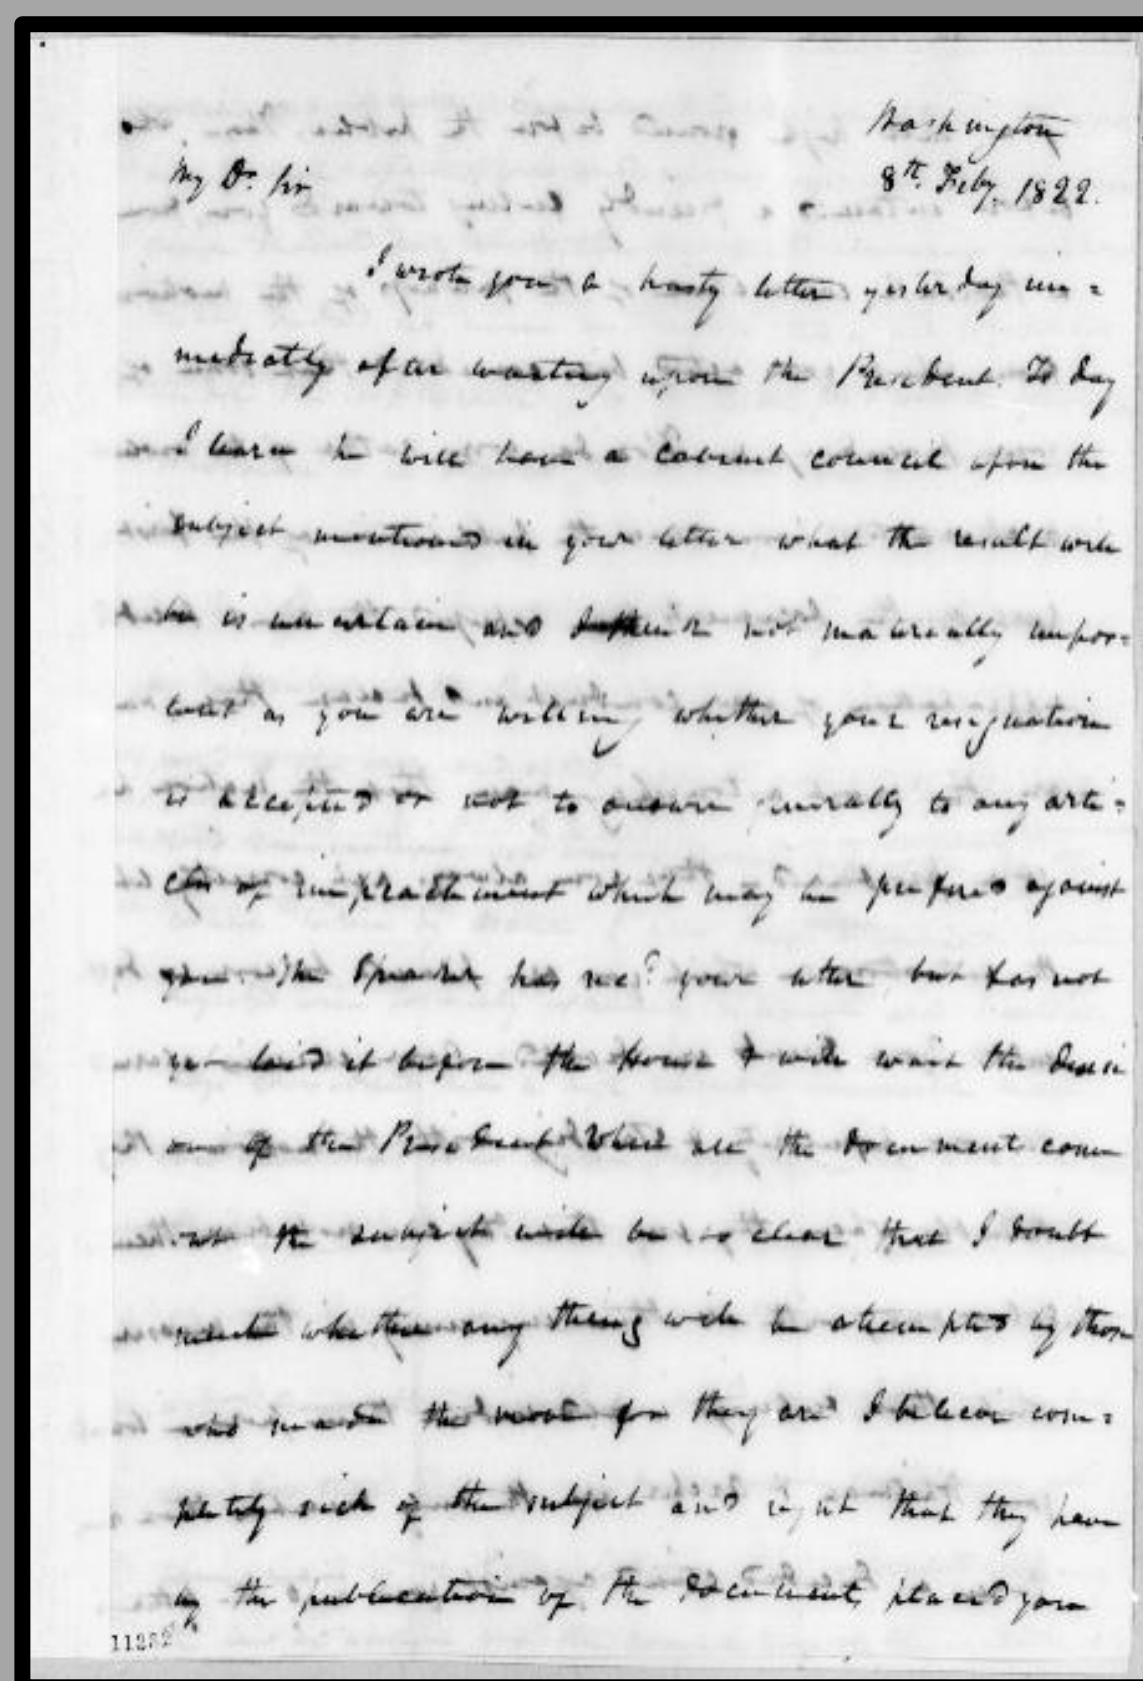 Washington
8th. Feby. 1822.
My Dr. Sir
I wrote you a hasty letter yesterday im=
mediatly after waiting upon the President. To day
I learn he will have a cabinet council upon the
subject mentioned in your letter what the result will
be is uncertain and I think not materially impor=
tant as you are willing whether your resignation
is accepted or not to answer to any arti=
cles of impeachment which may be prefered against
you. The Speaker has recd your letter but has not
yet laid it before the House & will wait the decisi
on of the President When all the documents come
out the subject will be so clear that I doubt
much whether any thing will be attempted by those
who made the move for they are I believe com=
pletely sick of the subject and regret that they have
by the publication of the documents placed you
11232